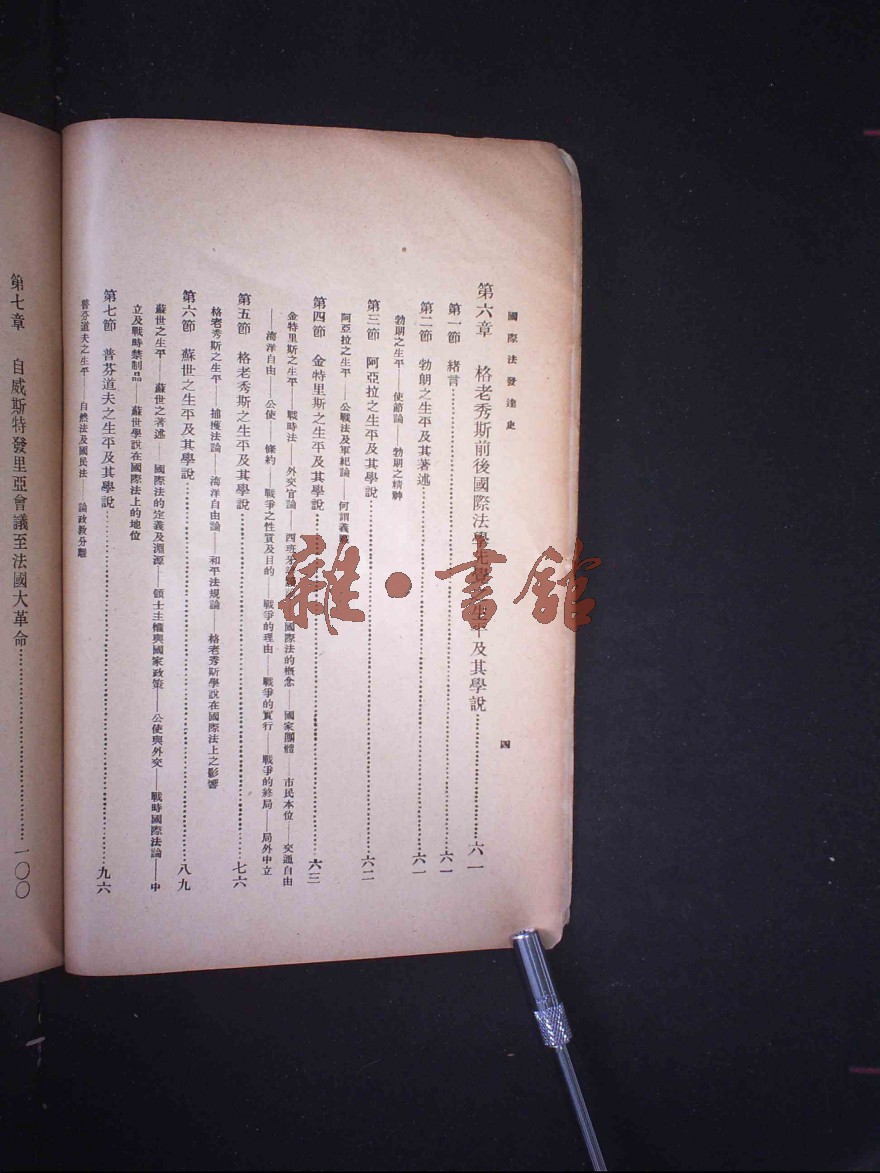 國際法發達史
四
第六章 格老秀斯前後國際法學先覺之生平及其學說……六一
第一節 緒言……六一
第二節 勃朗之生平及其著述……六一
勃朗之生平——使節論——勃朗之精神
第三節 阿亞拉之生平及其學說……六二
阿亞拉之生平——公戰法及軍紀論——何謂義戰
第四節 金特里斯之生平及其學說……六三
金特里斯之生平——戰時法——外交官論——西班牙 國際法的概念——國家團體——市民本位——交通自由
——海洋自由——公使——條約——戰爭之性質及目的——戰爭的理由——戰爭的實行——戰爭的終局——局外中立
第五節 格老秀斯之生平及其學說……七六
格老秀斯之生平——捕獲法論——海洋自由論——和平法規論——格老秀斯學說在國際法上之影響
第六節 蘇世之生平及其學說……八九
蘇世之生平——蘇世之著述——國際法的定義及淵源——領土主權與國家政策——公使與外交——戰時國際法論——中
立及戰時禁制品——蘇世學說在國際法上的地位
第七節 普芬道夫之生平及其學說……九六
普芬道夫之生平——自然法及國民法——論政教分離
第七章 自威斯特發里亞會議至法國大革命……一〇〇
雜·書館